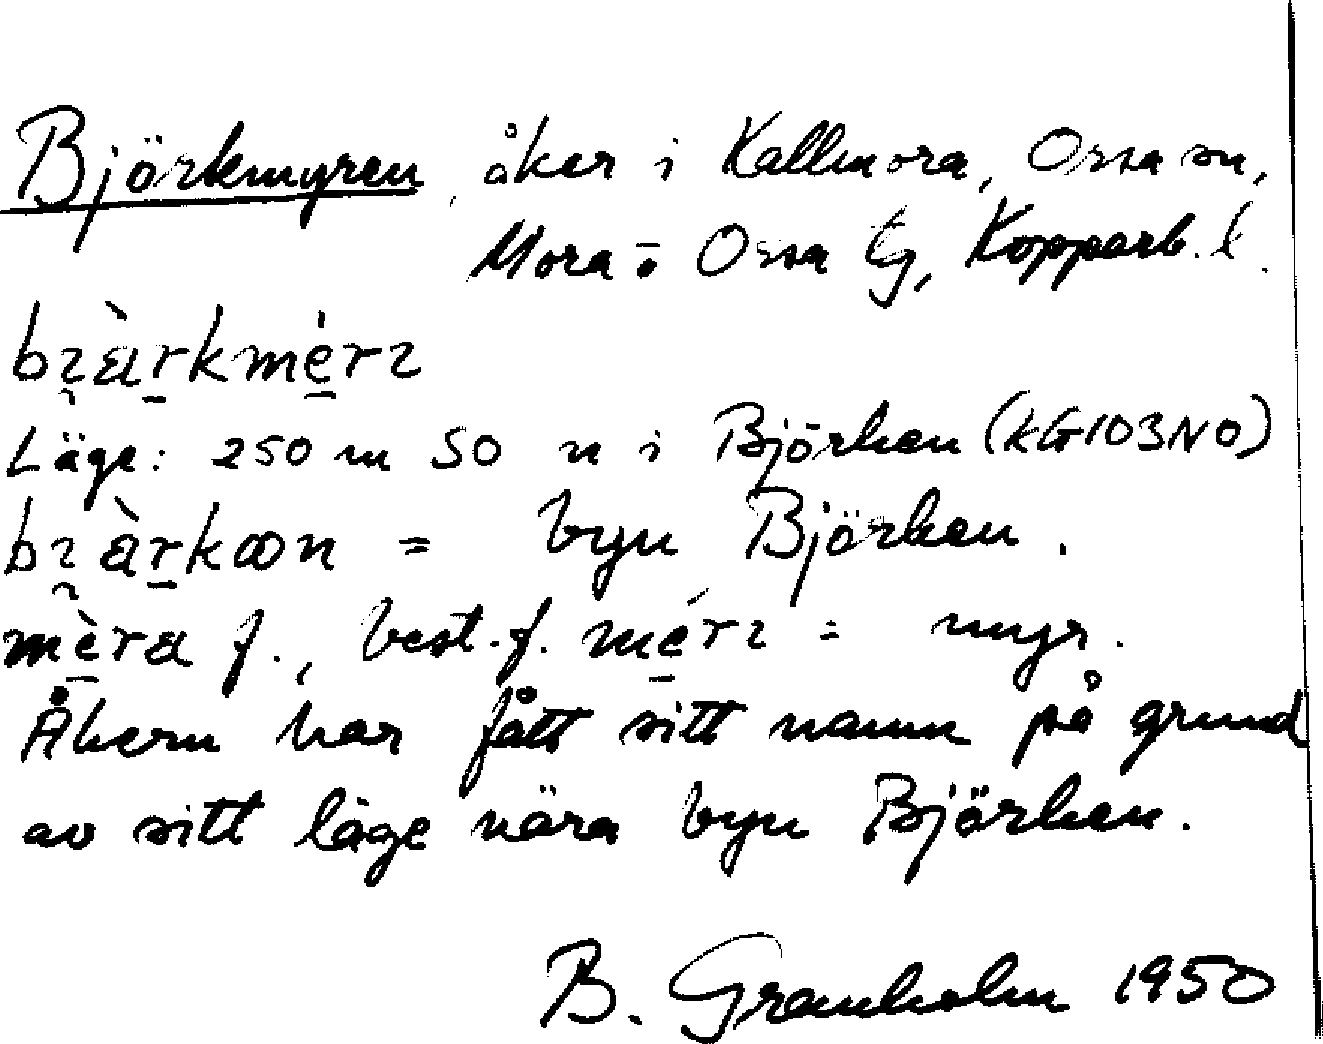 Björkmyren, åker i Kallmora, Orsa sn,
Mora o Orsa tg, Kopparb. l.
bɿ̯ὰr̠kmé̠rɿ
Läge: 250 m SO n i Björken (KG103NO)
bɿ̯àr̠kœn = byn Björken.
mè̠ra f., best. f. mé̠rɿ = myr.
Åkern har fått sitt namn på grund
av sitt läge nära byn Björken.
B. Granholm 1950